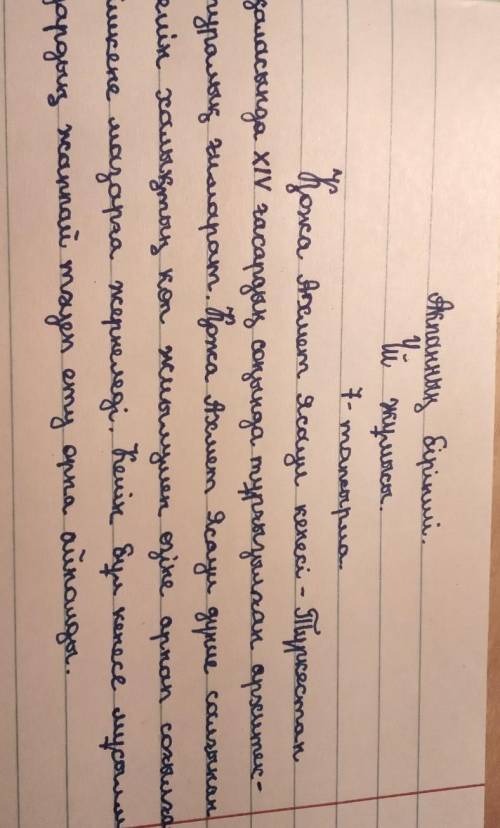 Ақпанның бірінші.
Үй жұмысы.
7-тапсырма.
Қожа Ахмет Ясауи кесесі - Түркестан
қаласында XIV ғасардың соңында тұрғызылған архитек-
туралық ғимарат. Қожа Ахмет Ясауи дүние салғынан
кейін халықтың көп жиылуымен өзіне арнап соғылға
кішкене мазарға жерленеді. Кейін бұл кенесе мұсылм
дардың жаппай тәуеп ету орна айналды.